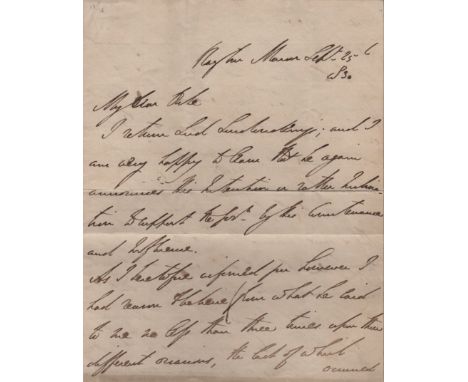 Sept. 25
1830
My dear
I return Lord; and I
am very happy to learn that he again
announces his Intention or rather Inclina-
tion to support the Govt. by his Countenance
and Influence.
As I heretofore informed you however I
had reason to believe (from what he said
to me no less than three times upon three
different occasions, the last of which
occurred